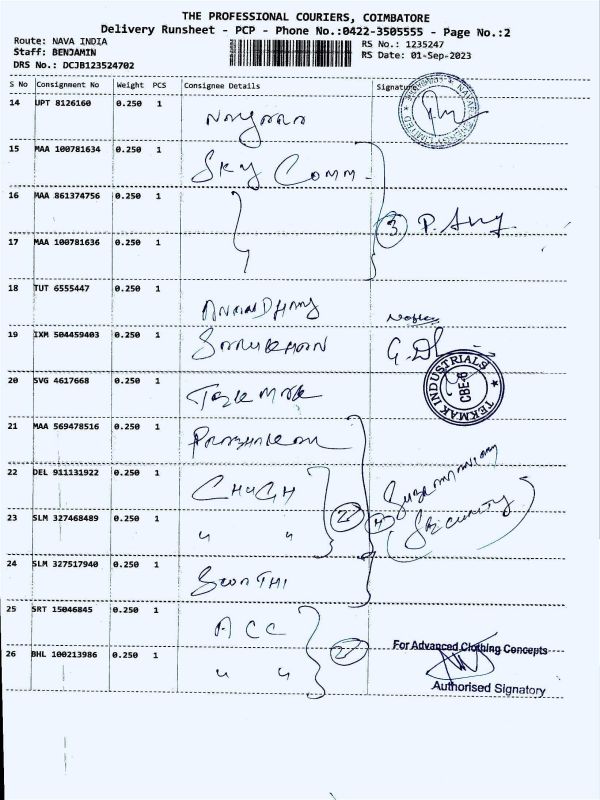 THE PROFESSIONAL COURIERS, COIMBATORE
Delivery Runsheet - PCP - Phone No.:0422-3505555 - Page No.:2
Route: NAVA INDIA
RS No.: 1235247
Staff: BENJAMIN
RS Date: 01-Sep-2023
DRS No.: DCJB123524702
S No Consignment No Weight PCS Consignee Details Signature
14 UPT 8126160 0.250 1
15 MAA 100781634 0.250 1 SKY COMM-
16 MAA 861374756 0.250 1
3 P.
17 MAA 100781636 0.250 1
18 TUT 6555447 0.250 1
19 IXM 504459403 0.250 1
G.
20 SVG 4617668 0.250 1
TEKMAK INDUSTRIALS
CBE-6
21 MAA 569478516 0.250 1
22 DEL 911131922 0.250 1 CHUGH
2 4
SECURITY
23 SLM 327468489 0.250 1 " "
24 SLM 327517940 0.250 1
25 SRT 15046845 0.250 1 ACC
2
For Advanced Clothing Concepts
26 BHL 100213986 0.250 1 " "
Authorised Signatory